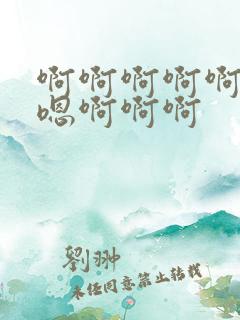 啊啊啊啊啊
嗯啊啊啊
劉翀
未经同意禁止转载